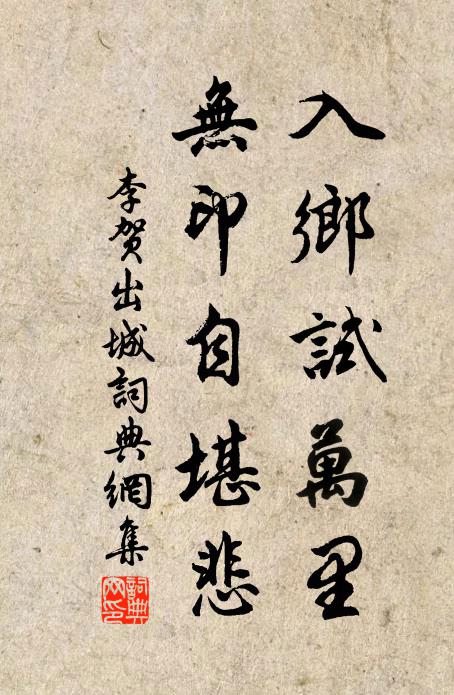 入鄉試萬里
無印自堪悲
李賀出城詞典網集
詞典
网印